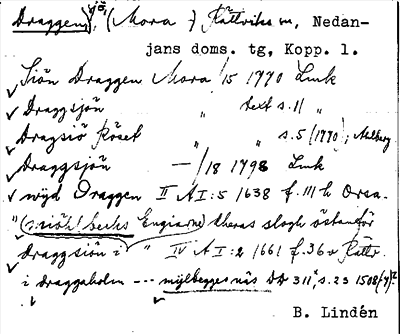 Draggen, sjö, (Mora o) Rättviks sn, Nedan-
jans doms. tg, Kopp. l.
Siön Draggen Mora /15 1770 Lmk
Draggsjön " text s.11 "
Dragsiö Röset " " s.5 (1770), Aalberg
Draggsjön —/18 1798 Lmk
wijd Draggen II A I:5 1638 f.111 h Orsa.
"(siöh! becks Engiarne) theras slogh östanför
draggsiön i " IV A I:2 1661 f.36 v Rättv.
i draggaholm --- mylbegges näs DD 311, s.23 1508
B. Lindén